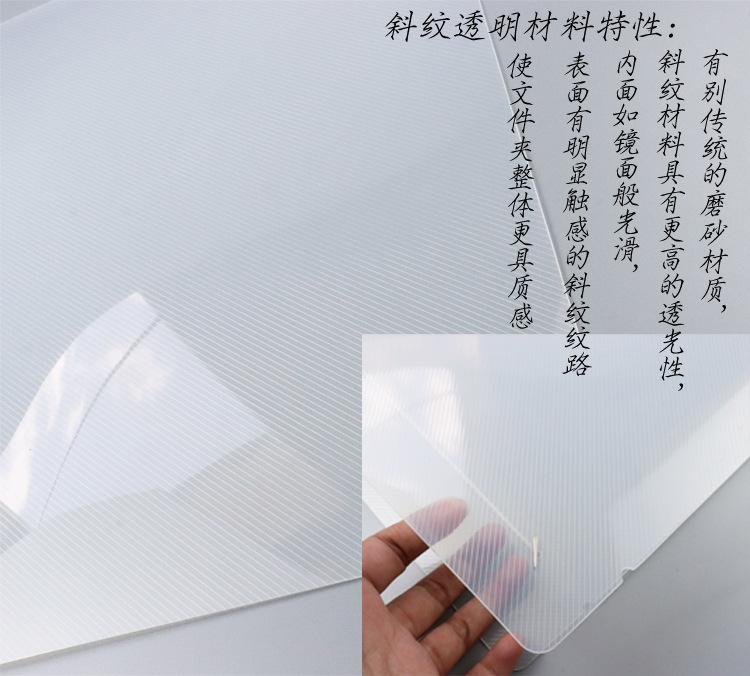 斜纹透明材料特性：
有别传统的磨砂材质，
斜纹材料具有更高的透光性，
内面如镜面般光滑，
表面有明显触感的斜纹纹路
使文件夹整体更具质感